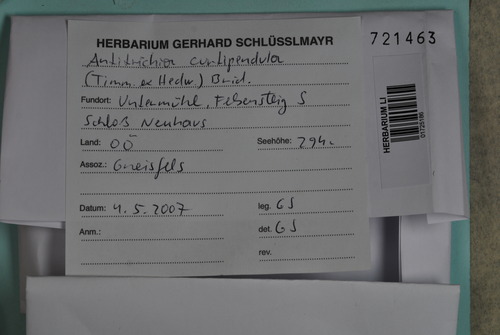 HERBARIUM GERHARD SCHLÜSSLMAYR
721463
Antitrichia curtipendula
(Timm ex Hedw) Brid.
Fundort: Untermühl, Felsensteig S
Schloß Neuhaus
Land: OÖ Seehöhe: 294m
Assoz.: Gneisfels
Datum: 4.5.2007 leg. GS
Anm.: det. GS
rev.
HERBARIUM LI
01725186